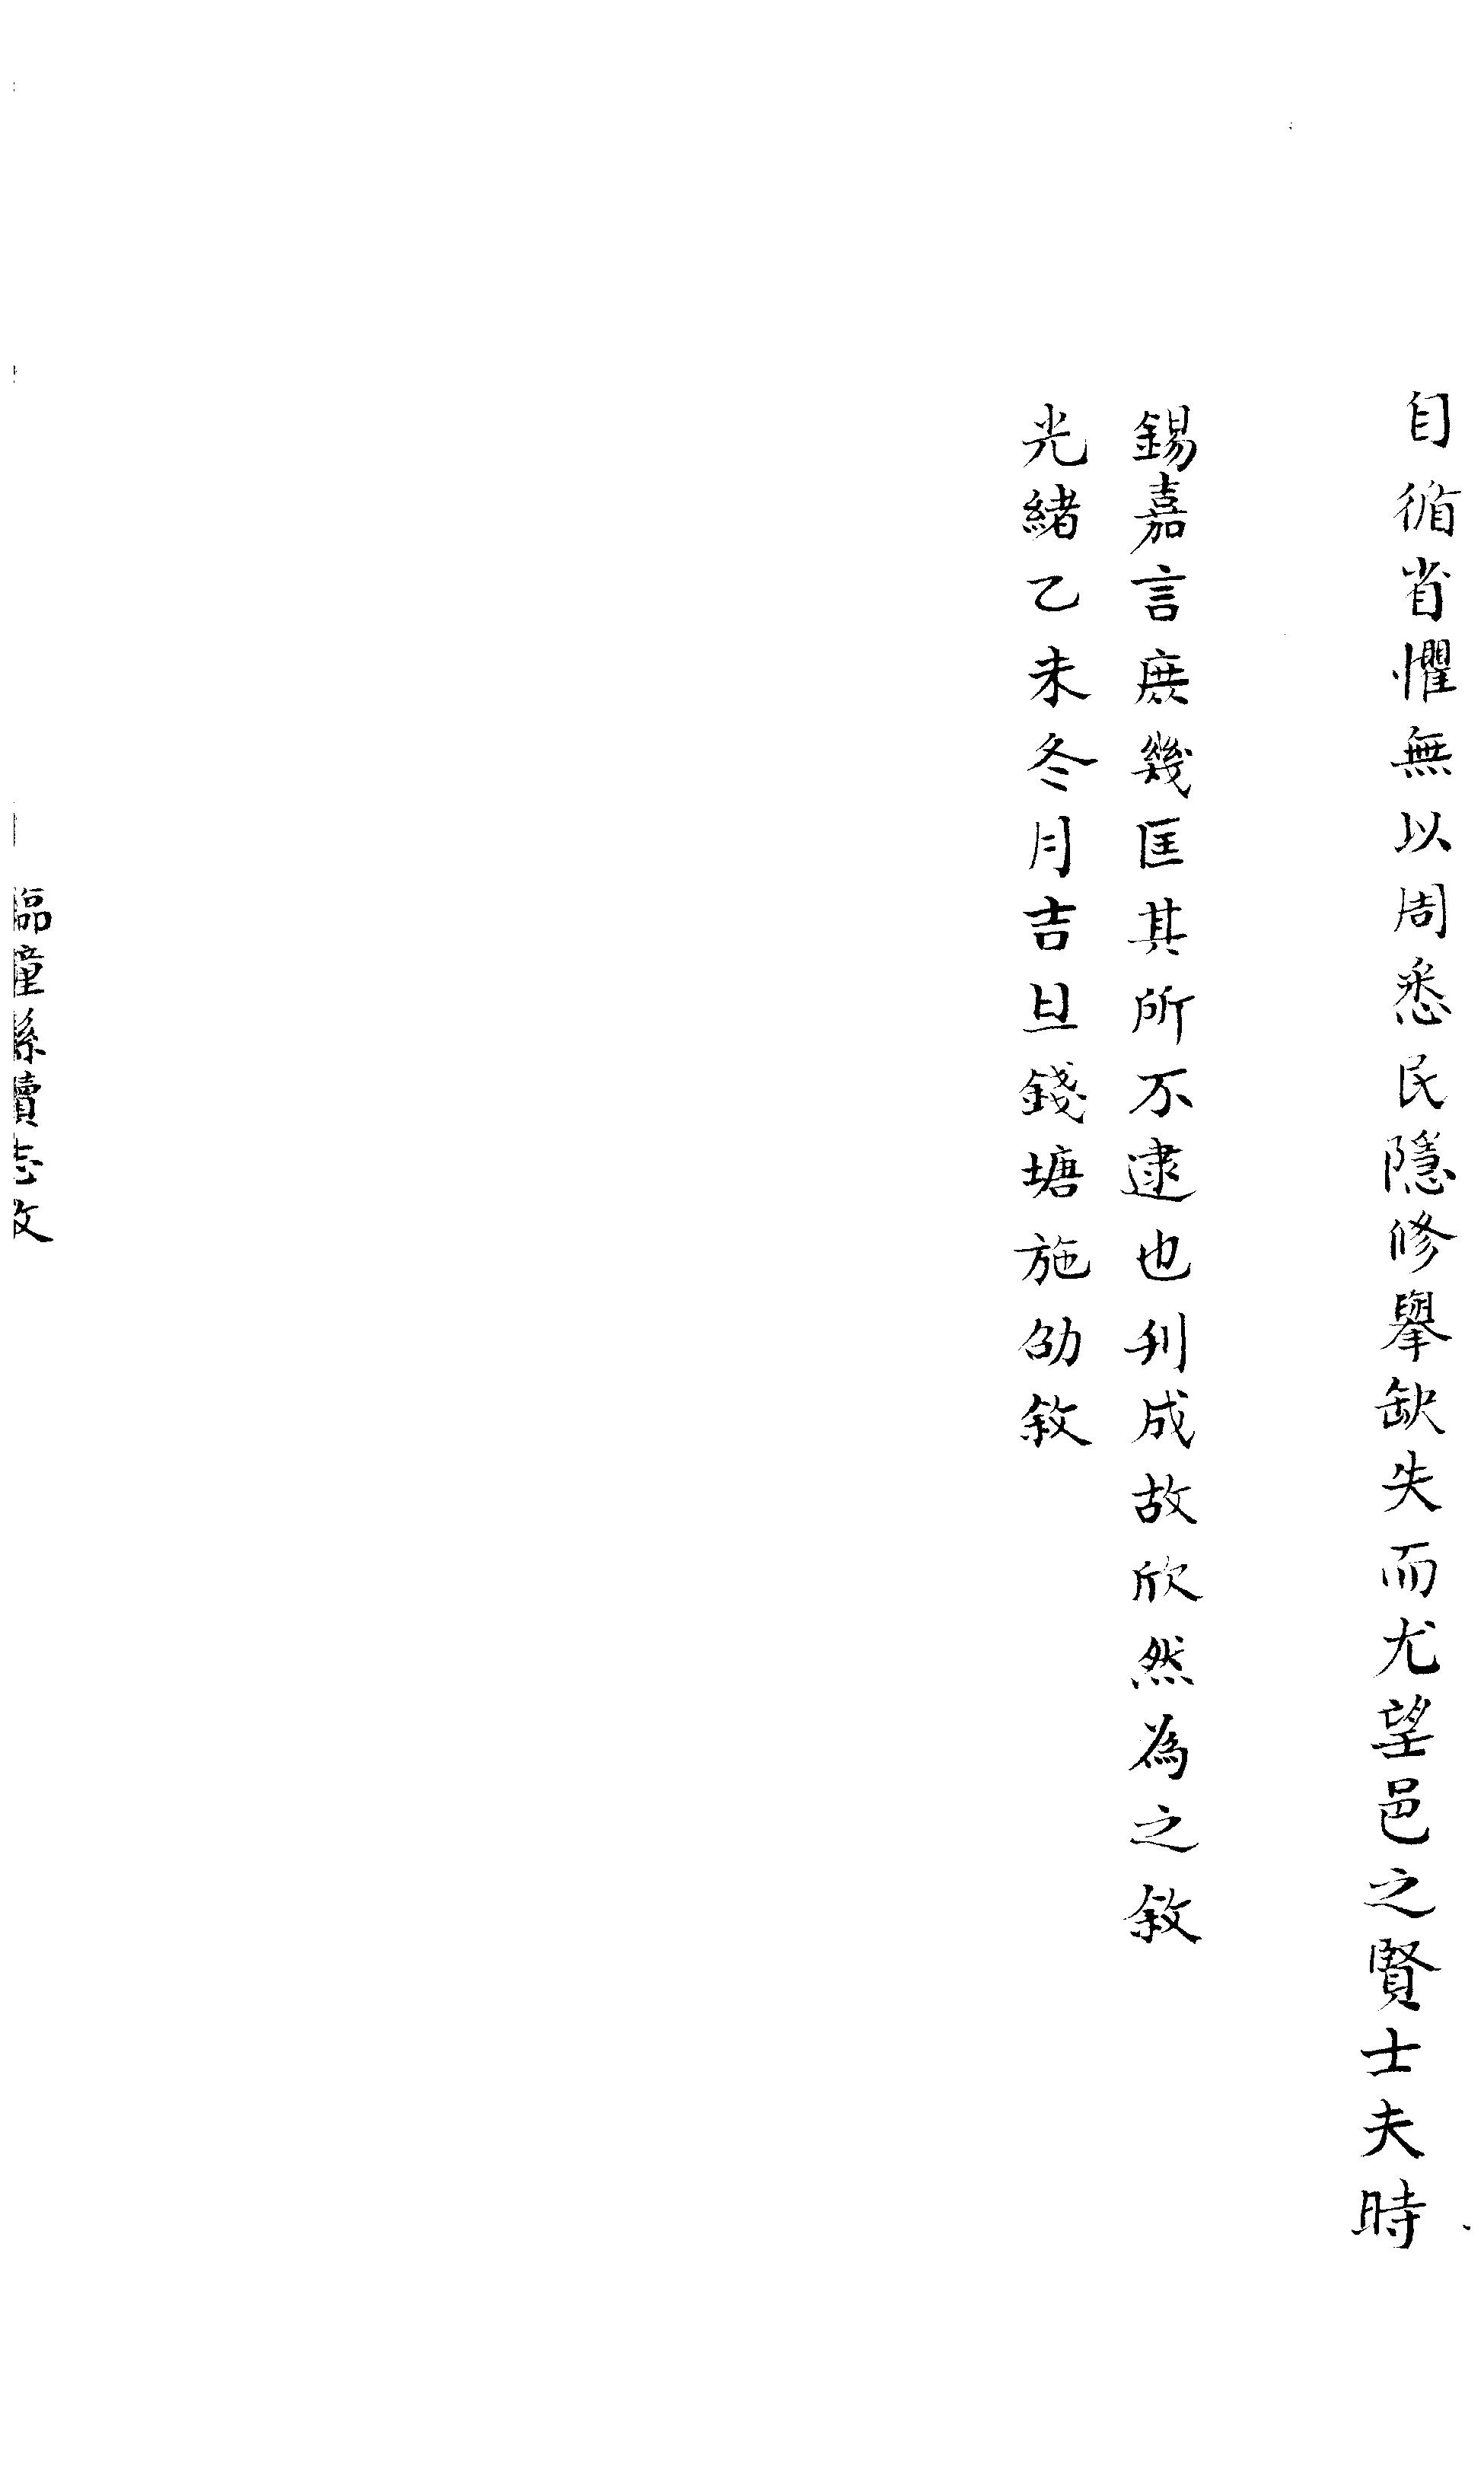 自循省懼無以周悉民隱修舉缺失而尤望邑之賢士夫時
錫嘉言庶幾匡其所不逮也刊成故欣然為之敘
光緒乙未冬月吉旦錢塘施劭敘
臨潼縣續志敘